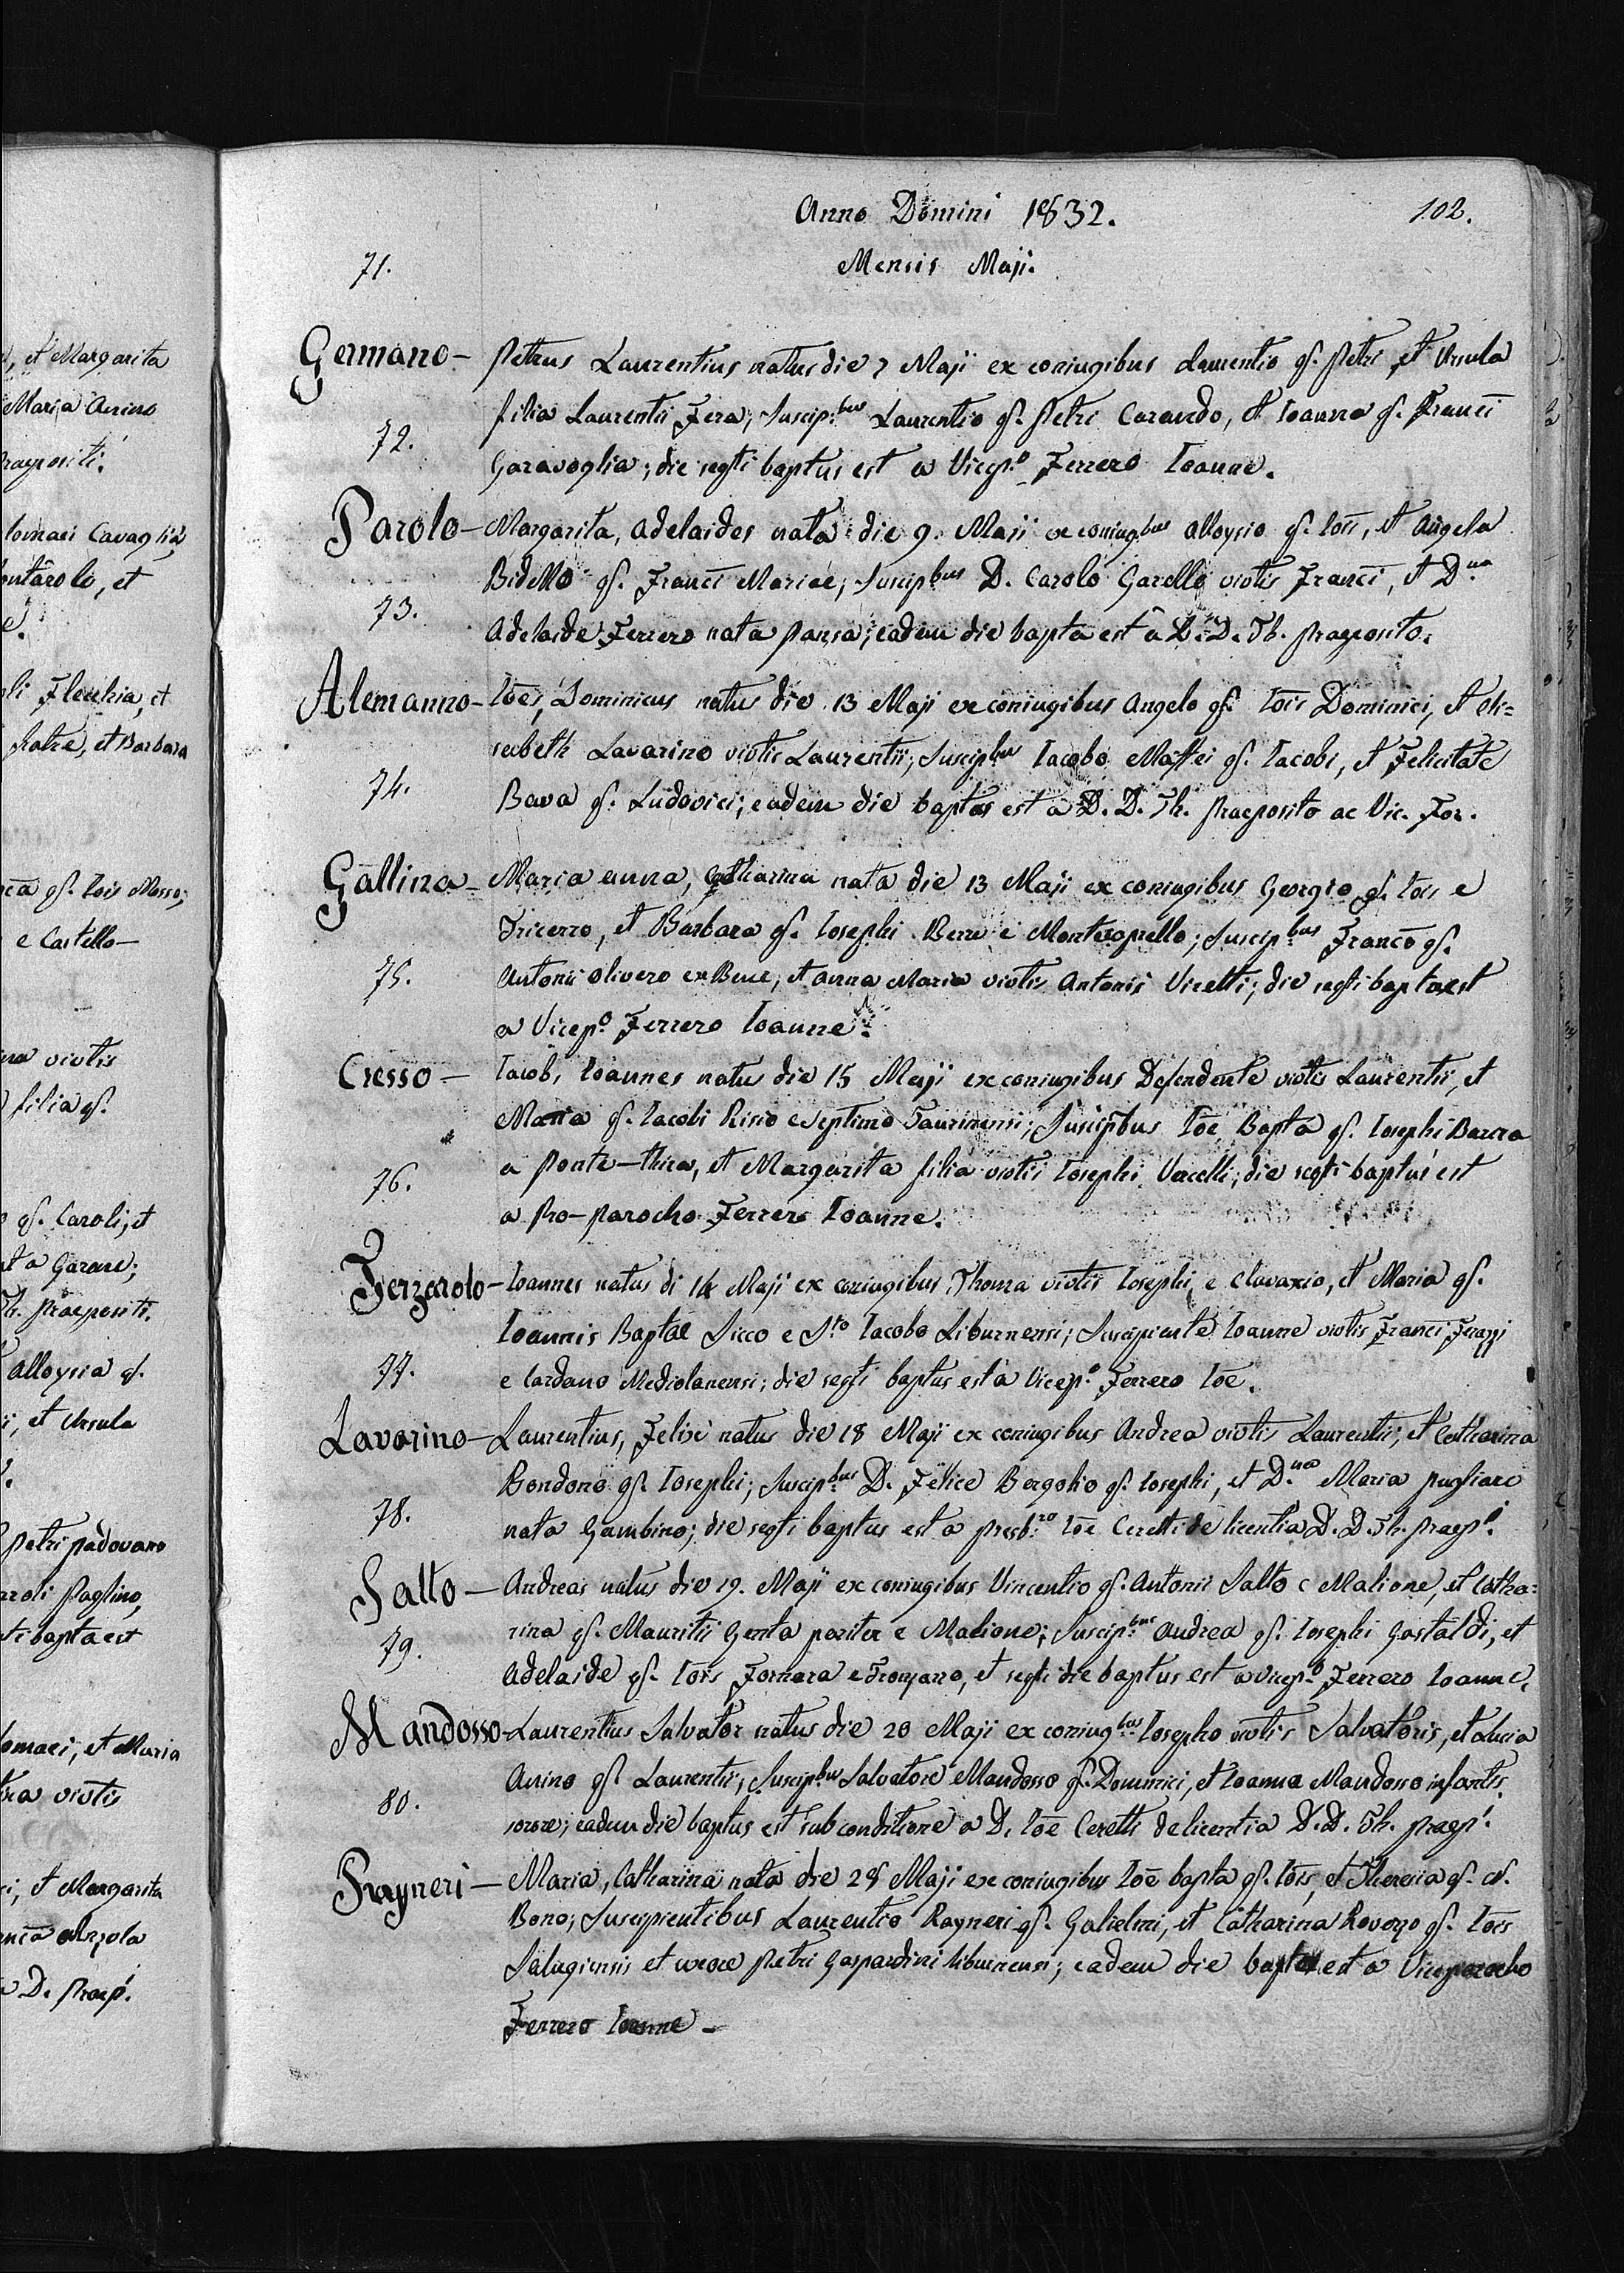 Anno Domini 1832.
102.
Mensis Maji.
71.
Germano - Petrus Laurentius natus die 7 Maji ex coniugibus Laurentio qf. Petri, et Ursula
filia Laurentii Fera; suscip.bus Laurentio qf. Petri Carando, et Ioanna qf. Franci
Garavoglia; die seqti baptus est a Vicep.o Ferrero Ioanne.
72.
Parolo - Margarita, Adelaides nata die 9. Maji ex coniug.bus Alloysio qf. Iois, et Angela
Bidello qf. Franci Mariae; suscip.bus D. Carolo Garella viotis Franci, et D.na
Adelaide Ferrero nata Pansa; eadem die bapta est a D. D. Th. Praeposito.
73.
Alemanno - Ioes, Dominicus natus die 13 Maji ex coniugibus Angelo qf. Iois Dominici, et Eli=
sabeth Lavarino viotis Laurentii; suscip.bus Iacobo Maffei qf. Iacobi, et Felicitate
Bava qf. Ludovici; eadem die baptus est a D. D. Th. Praeposito ac Vic. For.
74.
Gallina - Maria Anna, Catharina nata die 13 Maji ex coniugibus Georgio qf. Iois e
Tricerro, et Barbara qf. Iosephi Berra e Montecaprello; suscip.bus Franco qf.
Antonii Olivero ex Bene, et Anna Maria viotis Antonii Viretti; die seqti bapta est
a Vicep.o Ferrero Ioanne.
75.
Cresso - Iacob, Ioannes natus die 15 Maji ex coniugibus Defendente viotis Laurentii, et
Maria qf. Iacobi Risio e Septimo Taurinensi; suscipbus Ioe Bapta qf. Iosephi Barera
a Ponte-thira, et Margarita filia viotis Iosephi Vercelli; die seqti baptus est
a Pro-parocho Ferrero Ioanne.
76.
Ferrarolo - Ioannes natus di 14 Maji ex coniugibus Thoma viotis Iosephi e Clavaxio, et Maria qf.
Ioannis Baptae Sicco e S.to Iacobo Liburnensi; suscipiente Ioanne viotis Franci Ferazzi
e Cardano Mediolanensi; die seqti baptus est a Vicep.o Ferrero Ioe.
77.
Lavarino - Laurentius, Felix natus die 18 Maji ex coniugibus Andrea viotis Laurentii, et Catharina
Bondono qf. Iosephi; suscip.bus D. Felice Bergolio qf. Iosephi, et D.na Maria Pugliano
nata Gambino; die seqti baptus est a presb.ro Ioe Ceretti de licentia D. D. Th. Praep.i
78.
Salto - Andreas natus die 19. Maji ex coniugibus Vincentio qf. Antonii Salto e Malione, et Catha=
rina qf. Mauritii Genta pariter e Malione; suscip.bus Andrea qf. Iosephi Gastaldi, et
Adelaide qf. Iois Fornara e Tronzano, et seqti die baptus est a Vicep.o Ferrero Ioanne.
79.
Mandosso - Laurentius Salvator natus die 20 Maji ex coniug.bus Iosepho viotis Salvatoris, et Lucia
Anino qf. Laurentii; suscip.bus Salvatore Mandosso qf. Dominici, et Ioanna Mandosso infantis
sorore; eadem die baptus est sub conditione a D. Ioe Ceretti de licentia D. D. Th. Praep.i
80.
Rayneri - Maria, Catharina nata die 28 Maji ex coniugibus Ioe Bapta qf. Iois, et Theresia qf.
Bono; suscipientibus Laurentio Rayneri qf. Galielmi, et Catharina Roverzo qf. Iois
Salugiensis et uxore Petri Gaspardini liburnensi; eadem die bapta est a Viceparocho
Ferrero Ioanne -